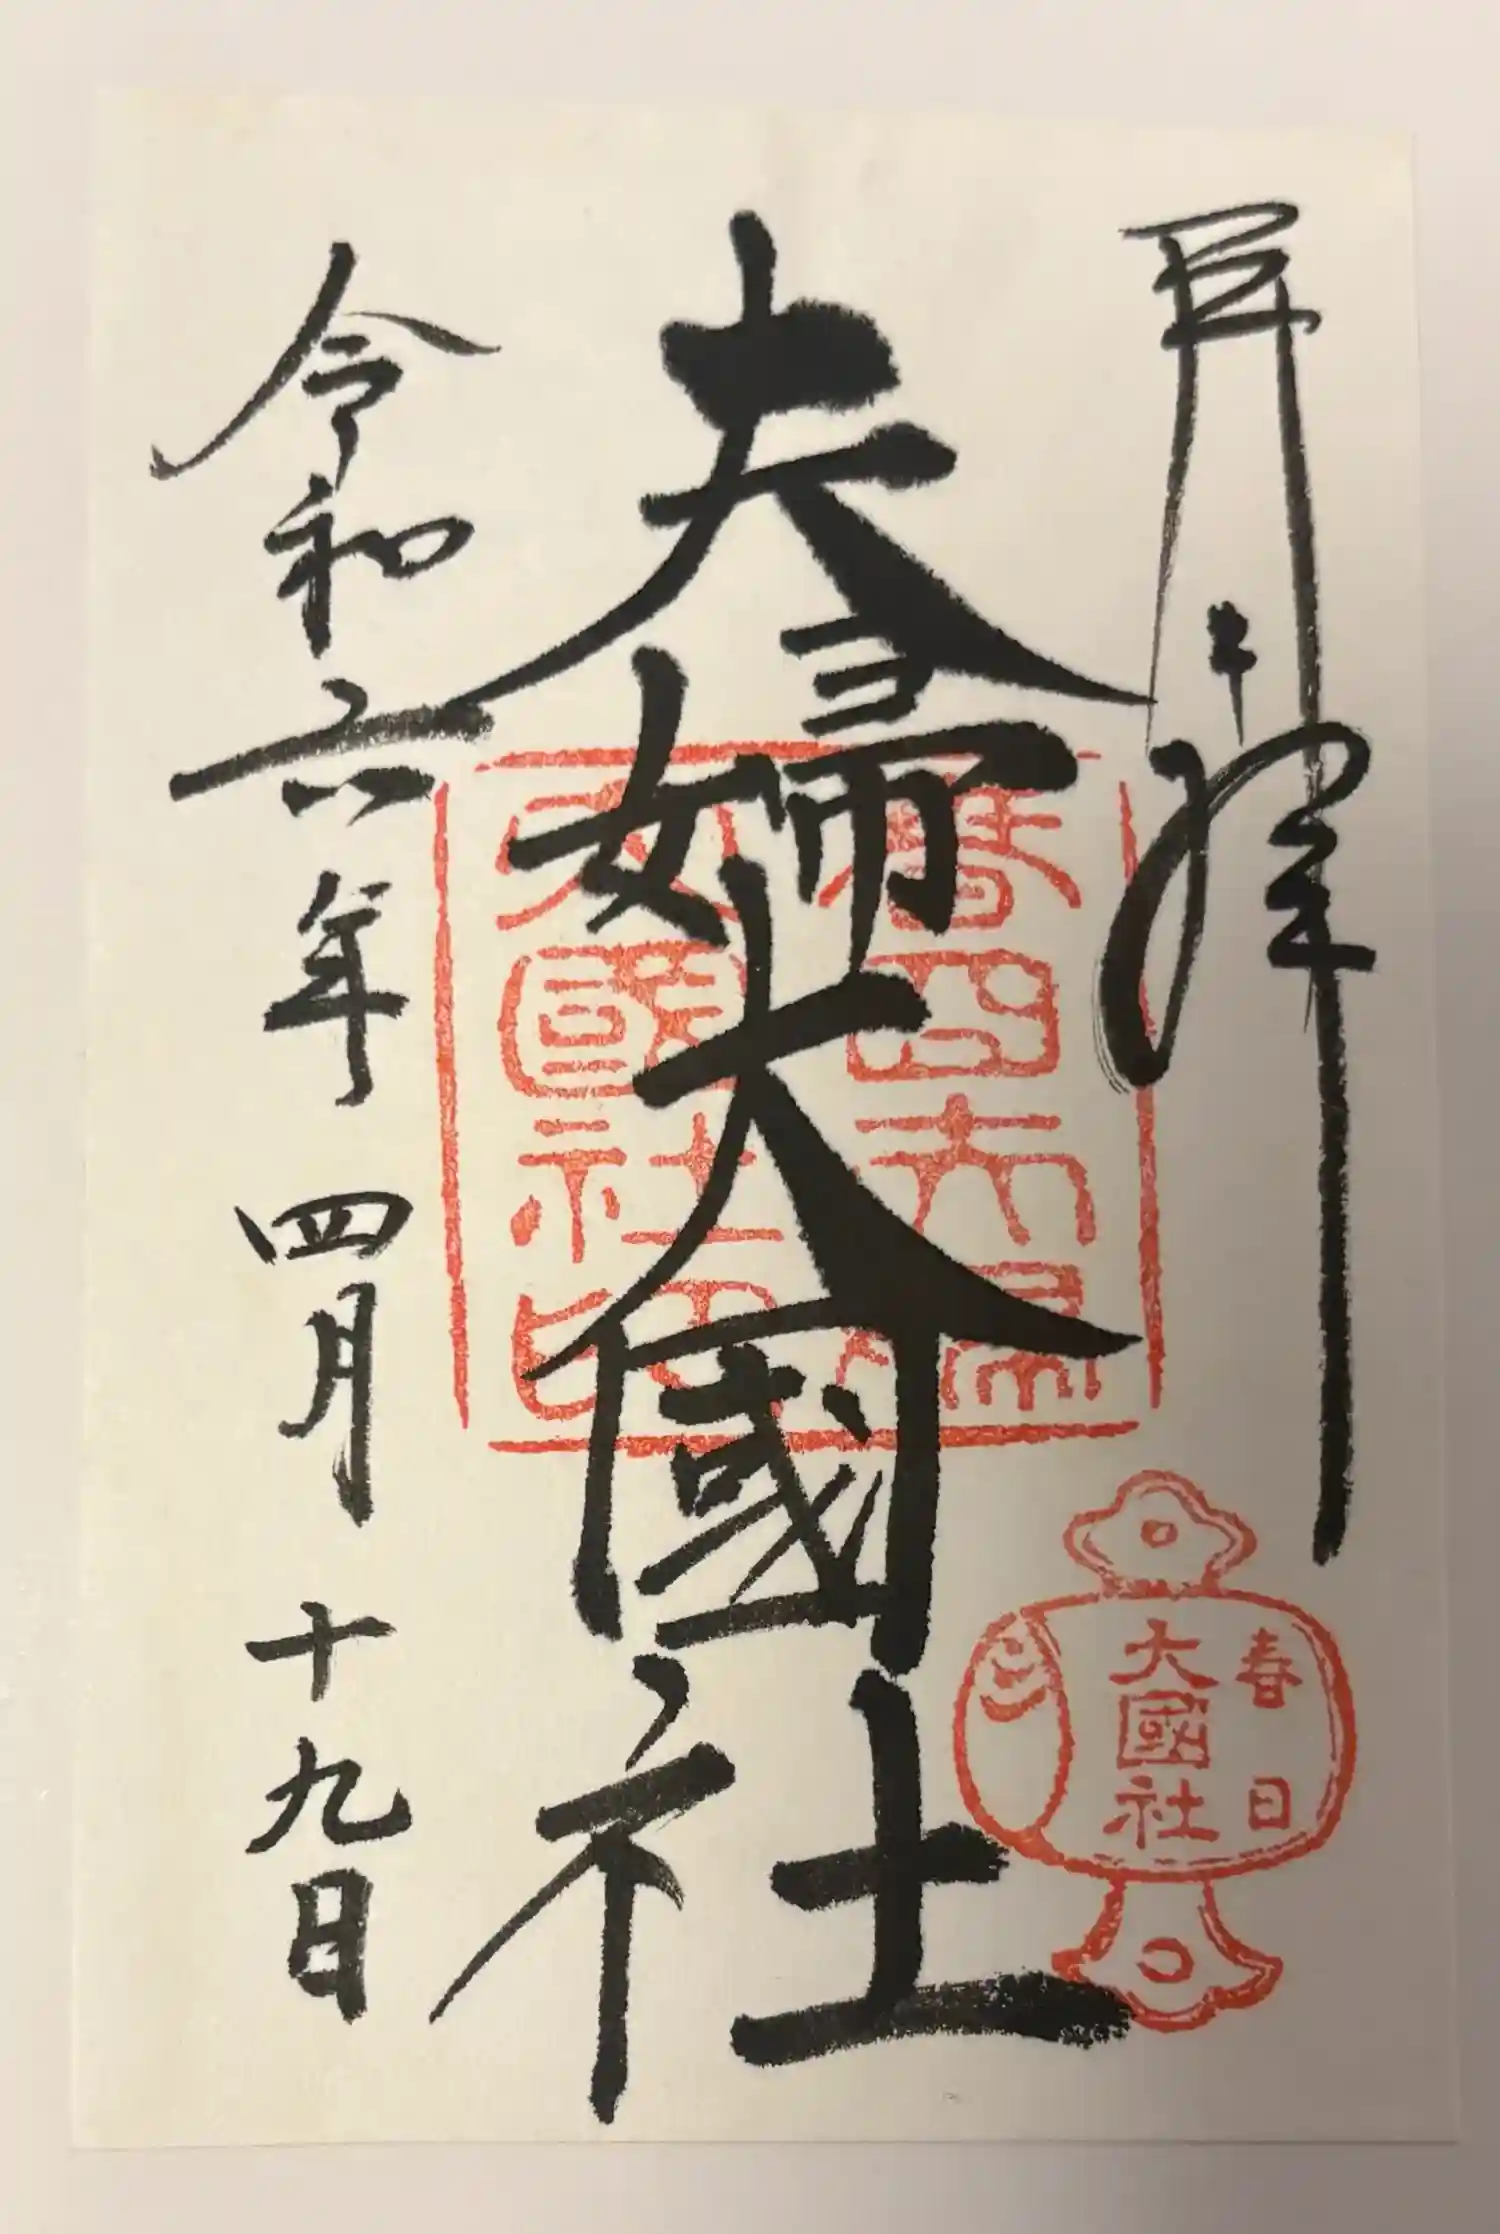 奉拝
夫婦大國社
令和六年四月十九日
大國社印
春日
大國社